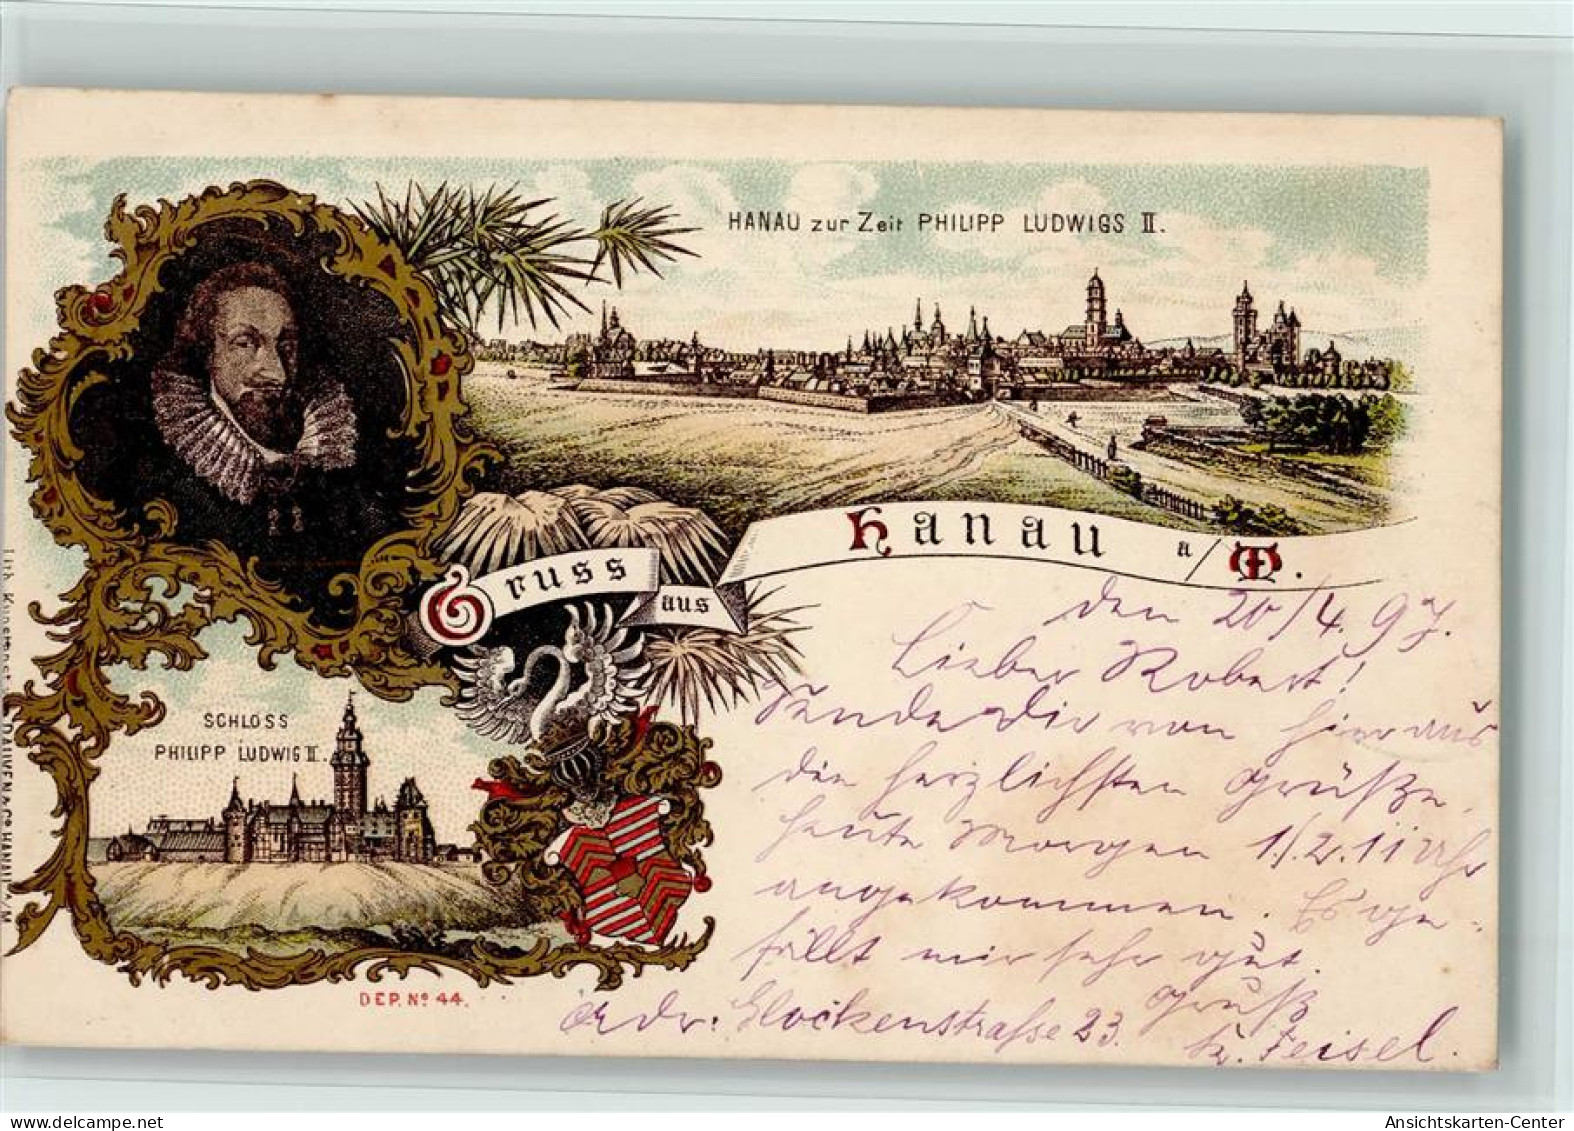 HANAU zur Zeit PHILIPP LUDWIGS II.
Gruss
aus
Hanau a/M.
SCHLOSS
PHILIPP LUDWIG II.
DEP. No 44.
den 20/4. 97.
Lieber Robert!
Sende Dir von hier aus
die herzlichsten Grüße,
heute Morgen 1/2 11 Uhr
angekommen. Es ge-
fällt mir sehr gut.
Gruß
Adr: Glockenstraße 23.
Feisel.
DELCAMPE.NET
myrtil
Ansichtskarten-Center